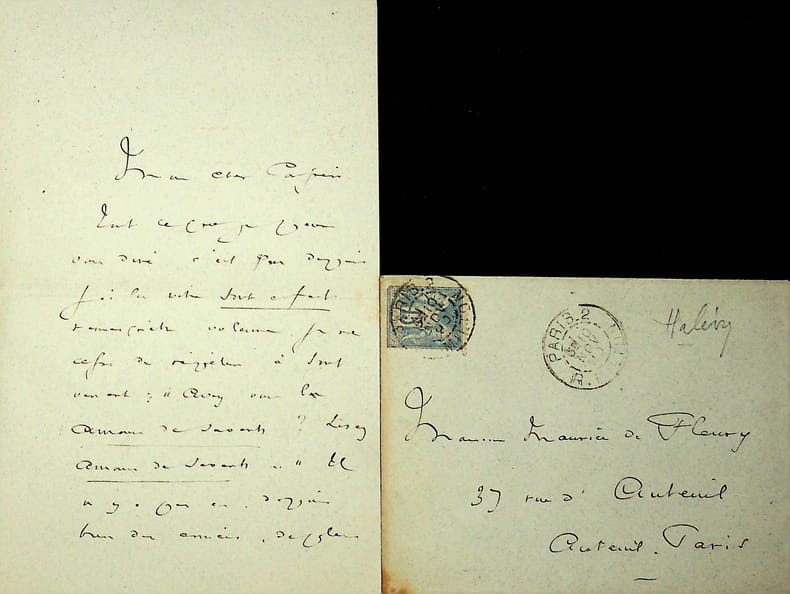 Mon cher
Tout ce que je peux
vous dire c'est que depuis
j'ai lu votre tout à fait
remarquable volume. Je ne
cesse de répéter à tout
venant : " Avez vous lu
Amours de Savants ? Lisez
Amours de Savants .. " Il
n'y a pas eu, depuis
bien des années, de plus
PARIS 2
PARIS 2
Halévy
Monsieur Maurice de Fleury
37 rue d' Auteuil
Auteuil. Paris